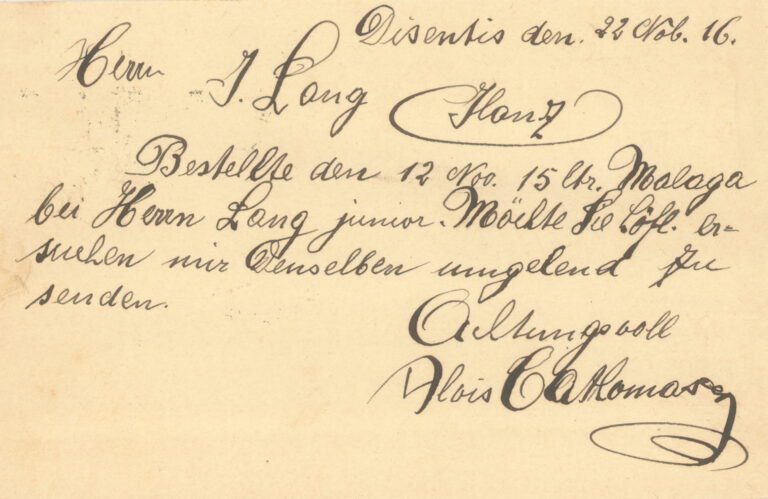 Disentis den. 22 Nob. 16.
Herrn
J. Lang Ilanz
Bestellte den 12 Nov. 15 ltr. Malaga
bei Herrn Lang junior. Möchte Sie höfl. er=
suchen mir denselben umgehend zu
senden.
Achtungsvoll
Alois Cathomas